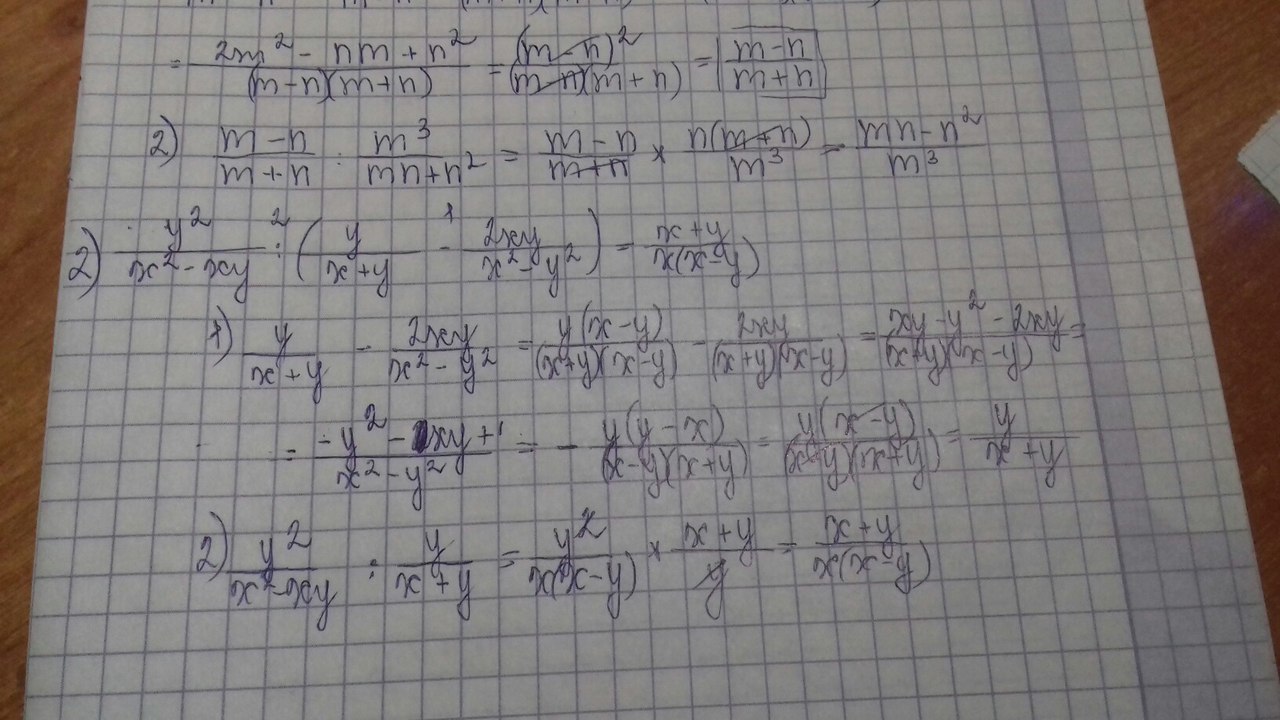 = (2m² - nm + n²)/((m-n)(m+n)) = (m-n)²/((m-n)(m+n)) = (m-n)/(m+n)
2) (m-n)/(m+n) : m³/(mn+n²) = (m-n)/(m+n) × n(m+n)/m³ = (mn-n²)/m³
2) y²/(x²-xy) :² (y/(x+y) -¹ 2xy/(x²-y²)) = (x+y)/(x(x-y))
1) y/(x+y) - 2xy/(x²-y²) = y(x-y)/((x+y)(x-y)) - 2xy/((x+y)(x-y)) = (xy-y²-2xy)/((x+y)(x-y)) =
= (-y²-xy+)/(x²-y²) = - y(y-x)/((x-y)(x+y)) = y(x-y)/((x-y)(x+y)) = y/(x+y)
2) y²/(x²-xy) : y/(x+y) = y²/(x(x-y)) × (x+y)/y = (x+y)/(x(x-y))